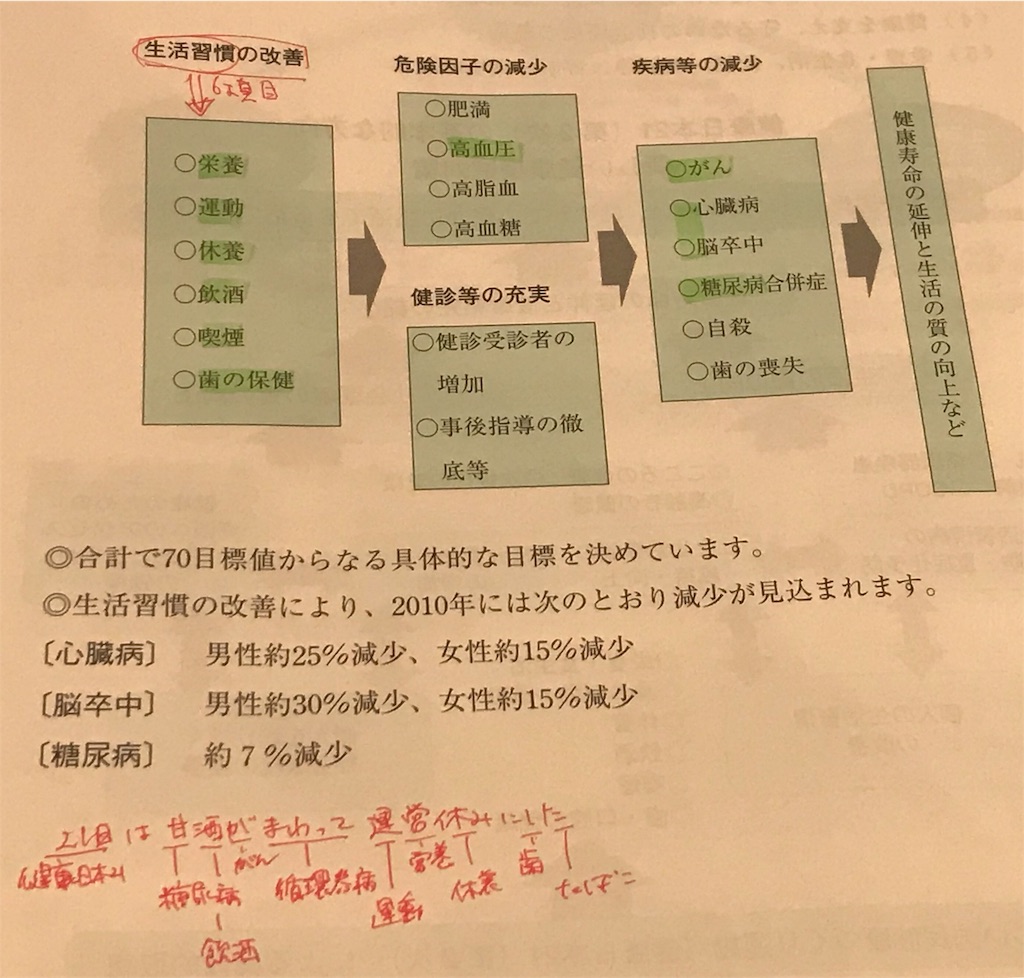 生活習慣の改善
6項目
○栄養
○運動
○休養
○飲酒
○喫煙
○歯の保健
危険因子の減少
○肥満
○高血圧
○高脂血
○高血糖
健診等の充実
○健診受診者の
増加
○事後指導の徹
底等
疾病等の減少
○がん
○心臓病
○脳卒中
○糖尿病合併症
○自殺
○歯の喪失
健康寿命の延伸と生活の質の向上など
◎合計で70目標値からなる具体的な目標を決めています。
◎生活習慣の改善により、2010年には次のとおり減少が見込まれます。
〔心臓病〕 男性約25%減少、女性約15%減少
〔脳卒中〕 男性約30%減少、女性約15%減少
〔糖尿病〕 約7%減少
21日は甘酒がまわって運営休みにした
健康日本21 糖尿病 がん 循環器病 運動 栄養 休養 歯 たばこ
飲酒